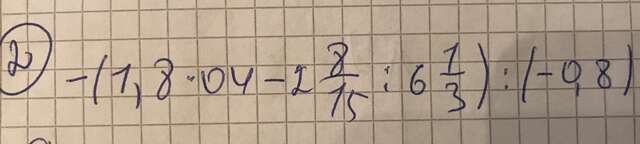 2) -(1,8·04-2 8/15 : 6 1/3) : (-0,8)